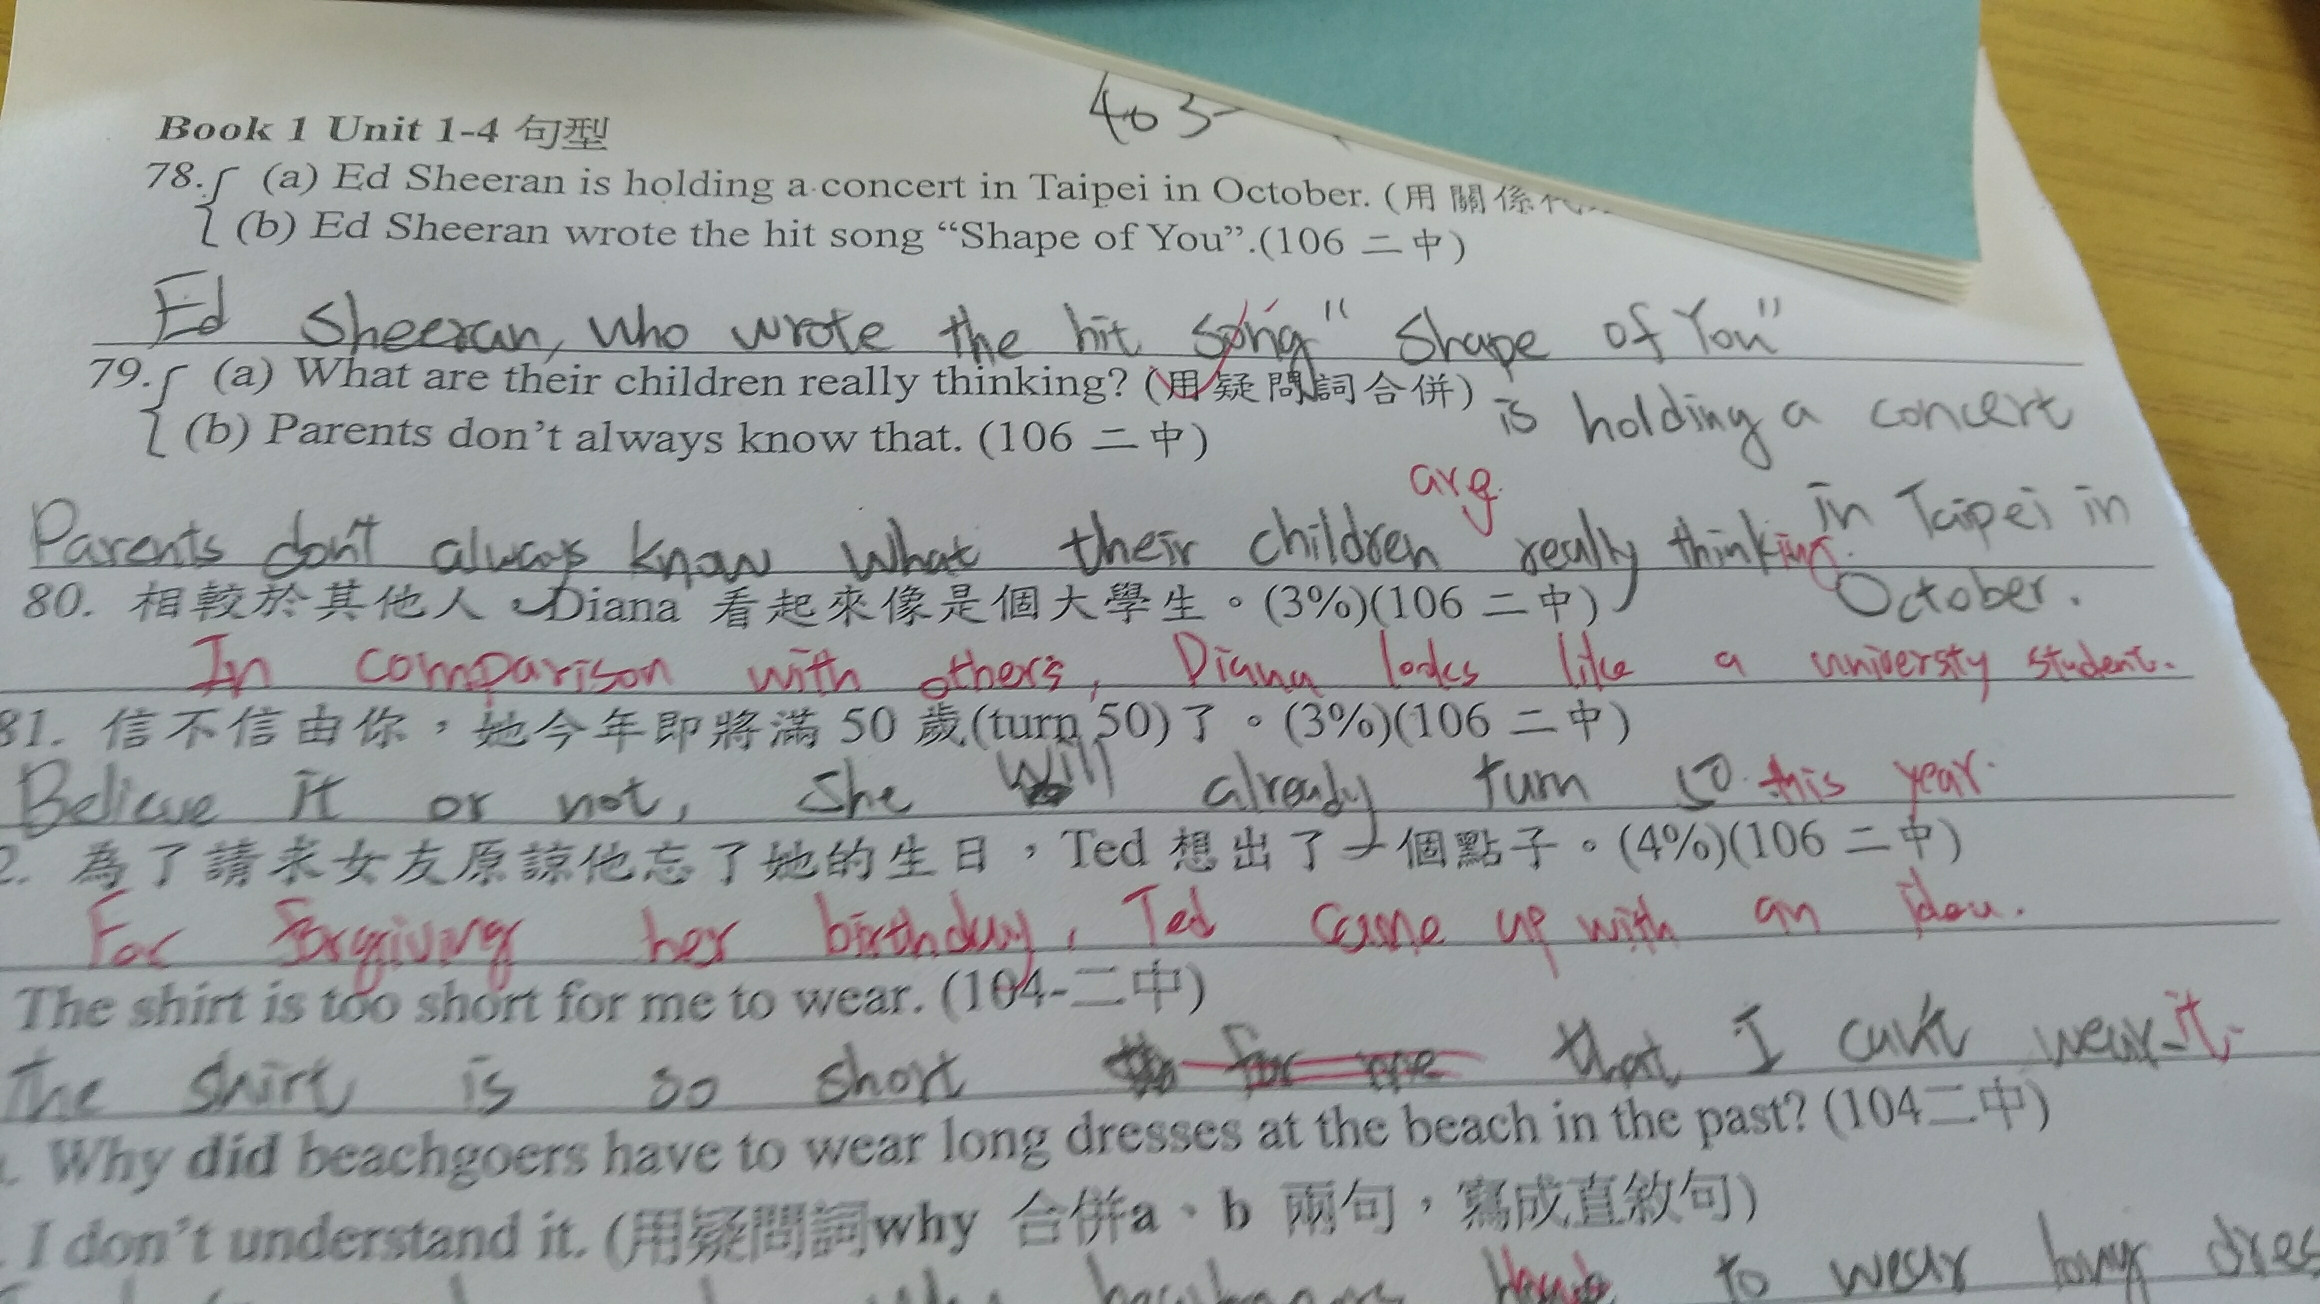 403-
Book 1 Unit 1-4 句型
78. (a) Ed Sheeran is holding a concert in Taipei in October. (用 關 係
(b) Ed Sheeran wrote the hit song “Shape of You”.(106 二中)
Ed Sheeran, who wrote the hit song " Shape of You"
is holding a concert
in Taipei in
October.
79. (a) What are their children really thinking? (用疑問詞合併)
(b) Parents don’t always know that. (106 二中)
are
Parents don't always know what their children really thinking.
80. 相較於其他人 Diana 看起來像是個大學生。(3%)(106 二中)
In comparison with others, Diana looks like a universty student.
81. 信不信由你，她今年即將滿 50 歲(turn 50)了。(3%)(106 二中)
Believe it or not, she will already turn 50. this year.
2. 為了請求女友原諒他忘了她的生日，Ted 想出了一個點子。(4%)(106 二中)
For forgiving her birthday, Ted came up with an idea.
The shirt is too short for me to wear. (104-二中)
The shirt is so short for me that I can't wear it.
. Why did beachgoers have to wear long dresses at the beach in the past? (104二中)
. I don’t understand it. (用疑問詞why 合併a、b 兩句，寫成直敘句)
have to wear long dres